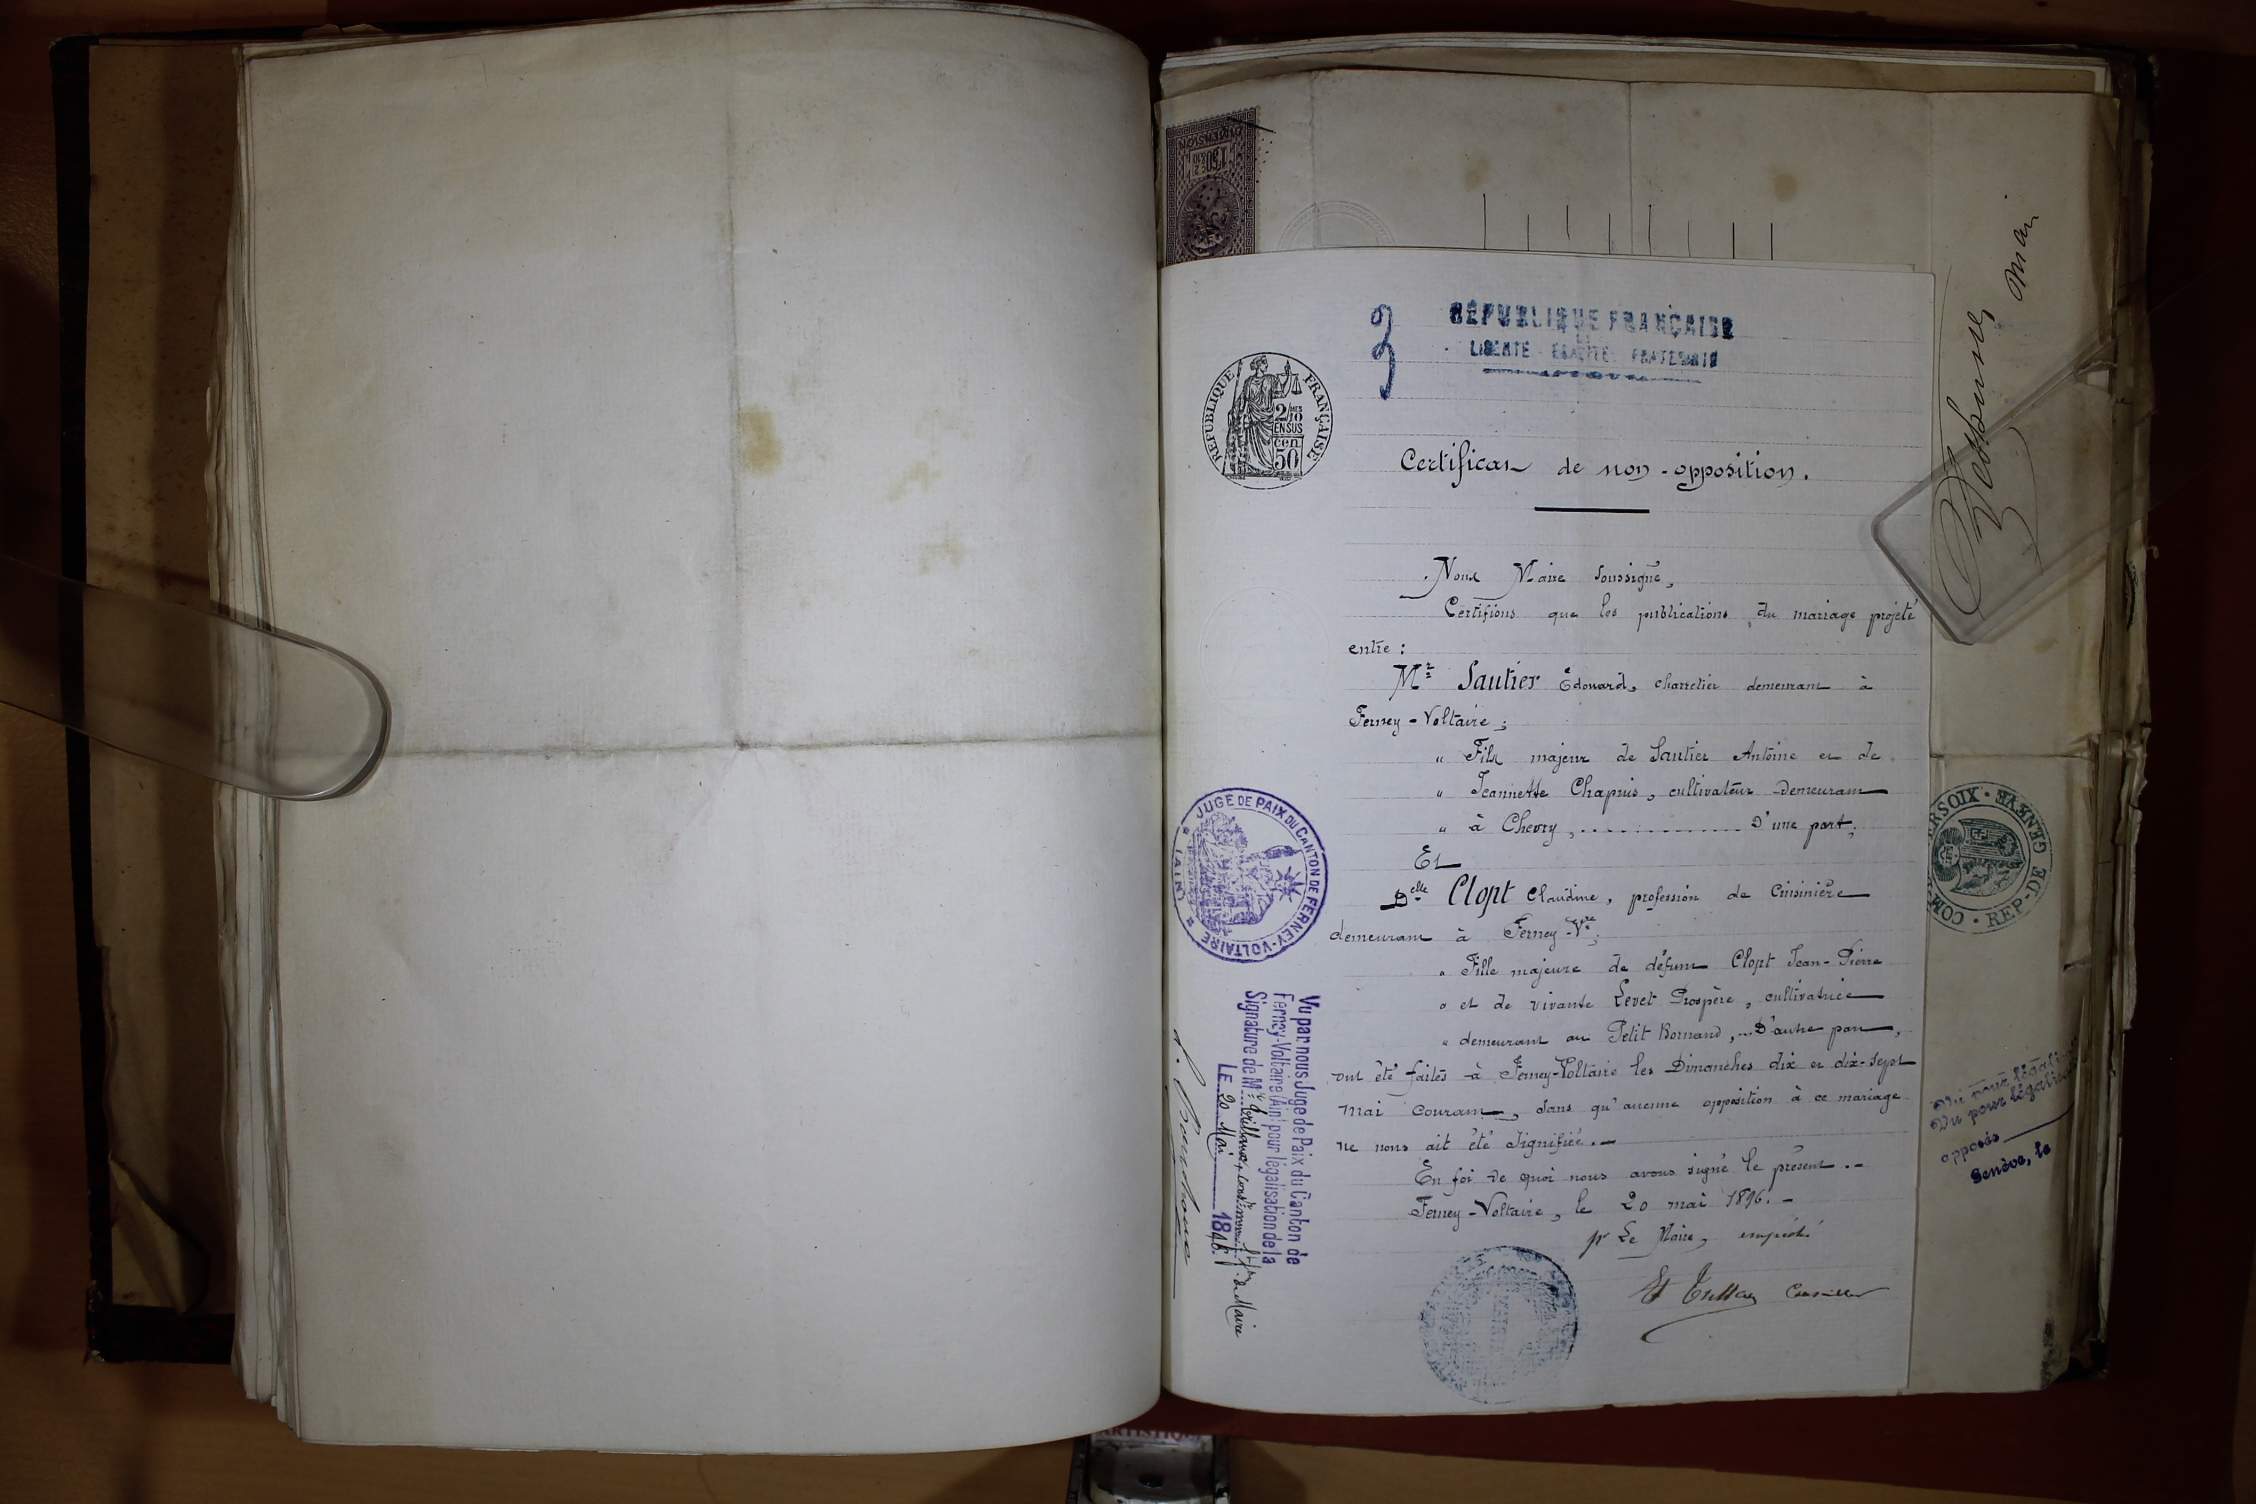 DIMENSION
1f50c
3
RÉPUBLIQUE FRANÇAISE
LIBERTE - EGALITE - FRATERNITE
RÉPUBLIQUE FRANÇAISE
2/10MES
EN SUS
cen
50
Certificat de non-opposition.
Nous Maire soussigné,
Certifions que les publications du mariage projeté
entre :
Mr Sautier Edouard, charretier demeurant à
Ferney-Voltaire ;
" Fils majeur de Sautier Antoine et de
" Jeannette Chapuis, cultivateur demeurant
" à Chevry, ............... D'une part,
Et
Delle Clopt Claudine, profession de Cuisinière
demeurant à Ferney-Vre,
" Fille majeure de défunt Clopt Jean-Pierre
" et de vivante Levet Prospère, cultivatrice
" demeurant au Petit Bornand, ... D'autre part,
ont été faites à Ferney-Voltaire les Dimanches dix et dix-sept
mai courant, sans qu'aucune opposition à ce mariage
ne nous ait été signifiée. -
En foi de quoi nous avons signé le présent. -
Ferney-Voltaire, le 20 mai 1896. -
pr Le Maire, empêché
Conseiller
JUGE DE PAIX DU CANTON DE FERNEY-VOLTAIRE
(AIN)
Vu par nous Juge de Paix du Canton de
Ferney-Voltaire (Ain) pour légalisation de la
Signature de Mr
de Maire
LE 20 Mai 1896
mai
REP-DE GENEVE
Vu pour légalis
Vu pour légalis
apposée
Genève, le